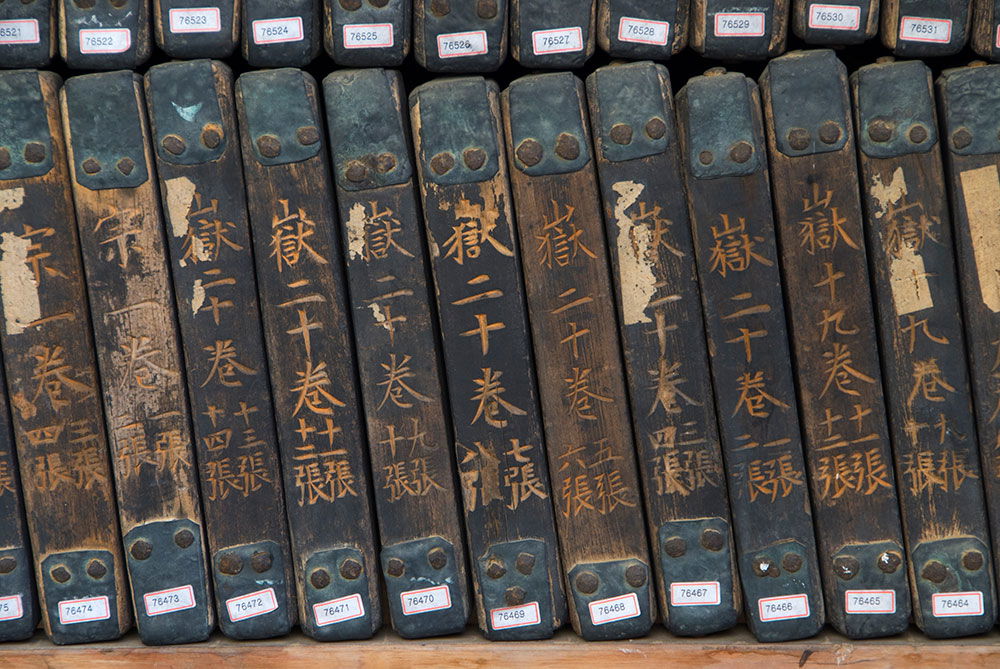 6521
76522
76523
76524
76525
76526
76527
76528
76529
76530
76531
75
宗一卷
三張
四張
76474
宗一卷
一張
張
76473
嶽二十卷
十三張
十四張
76472
嶽二十卷
十一張
十二張
76471
嶽二十卷
九張
十張
76470
嶽二十卷
七張
八張
76469
嶽二十卷
五張
六張
76468
嶽二十卷
三張
四張
76467
嶽二十卷
一張
二張
76466
嶽十九卷
十一張
十二張
76465
嶽九卷
九張
十張
76464